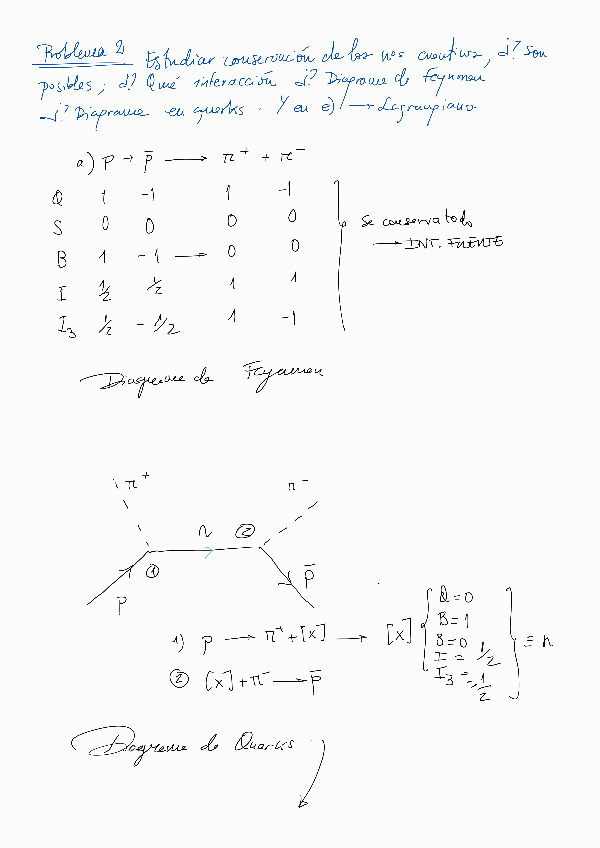 Problema 2 Estudiar conservación de los nos cuantivos, ¿? Son
posibles; ¿? Qué interacción ¿? Diagrama de Feynman
¿? Diagrama en quarks. Y en e) → Lagrangiano
a) p + p̄ → π⁺ + π⁻
Q 1 -1 1 -1
S 0 0 0 0
B 1 -1 → 0 0
I 1/2 1/2 1 1
I₃ 1/2 -1/2 1 -1
Se conserva todo
→ INT. FUERTE
Diagrama de Feynman
π⁺ π⁻
n ②
① p̄
p
1) p → π⁺ + [x] → [x] { Q=0
B=1
S=0
I = 1/2
I₃ = -1/2 } ≡ n
② [x] + π⁻ → p̄
Diagrama de Quarks